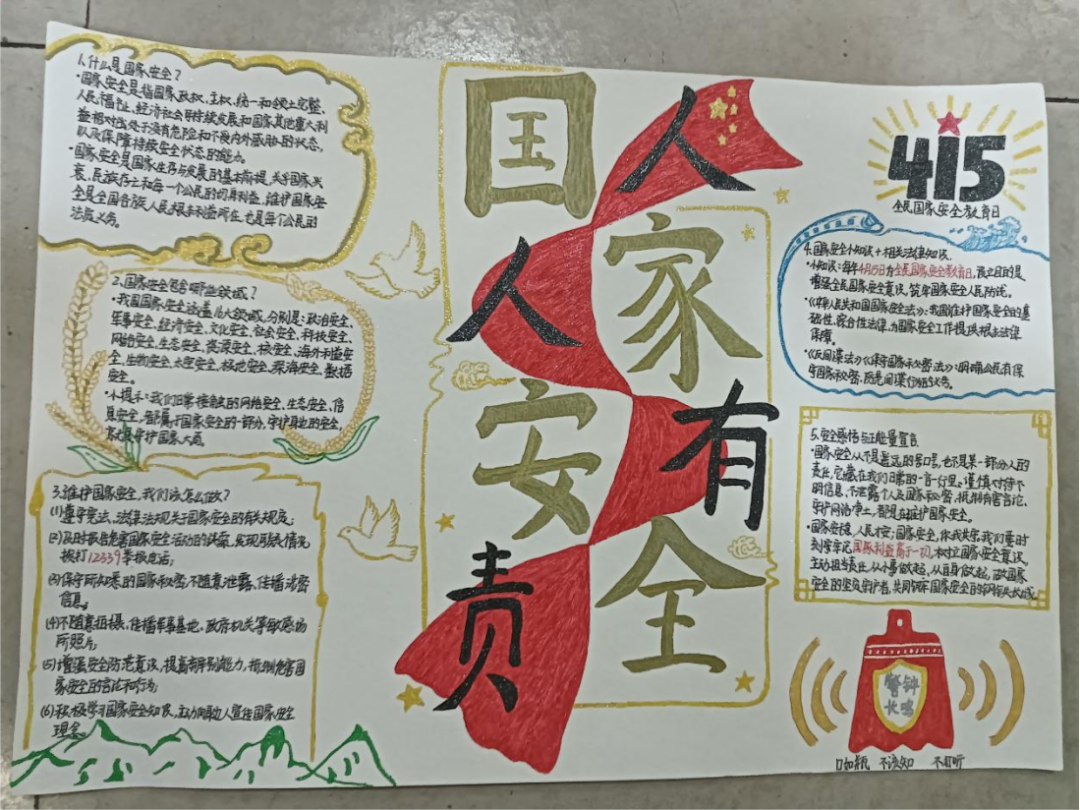 1.什么是国家安全?
·国家安全是指国家政权、主权、统一和领土完整、
人民福祉、经济社会可持续发展和国家其他重大利
益相对处于没有危险和不受内外威胁的状态,
以及保障持续安全状态的能力。
·国家安全是国家生存与发展的基本前提,关乎国家兴
衰、民族存亡和每一个公民的切身利益,维护国家安
全是全国各族人民根本利益所在,也是每个公民的
法定义务。
2.国家安全包含哪些领域?
·我国国家安全涵盖 大领域,分别是:政治安全、
军事安全、经济安全、文化安全、社会安全、科技安全、
网络安全、生态安全、资源安全、核安全、海外利益安
全、生物安全、太空安全、极地安全、深海安全、数据
安全。
·小提示:我们日常接触的网络安全、生态安全、信
息安全,都属于国家安全的一部分,守护身边的安全,
就是守护国家大局
3.维护国家安全,我们该怎么做?
(1)遵守宪法、法律法规关于国家安全的有关规定;
(2)及时报告危害国家安全活动的线索,发现可疑情况
拨打12339举报电话;
(3)保守所知悉的国家秘密,不随意泄露、传播涉密
信息。
(4)不随意拍摄、传播军事基地、政府机关等敏感场
所照片;
(5)增强安全防范意识,提高辨别能力,抵制危害国
家安全的言论和行为;
(6)积极学习国家安全知识,主动向身边人宣传国家安全
理念。
国家安全
人人有责
415
全民国家安全教育日
4.国家安全小知识+相关法律知识
·小知识:每年4月15日为全民国家安全教育日,设立目的是
增强全民国家安全意识,筑牢国家安全人民防线。
·《中华人民共和国国家安全法》:我国维护国家安全的基
础性、综合性法律,为国家安全工作提供根本法律
保障。
·《反间谍法》《保守国家秘密法》:明确公民有保
守国家秘密、防范间谍行为的义务。
5.安全感悟与正能量宣言
·国家安全从不是遥远的口号,也不是某一部分人的
责任,它藏在我们日常的一言一行里。谨慎对待不
明信息、不泄露个人及国家秘密、抵制有害言论、
守护网络净土,都是在维护国家安全。
·国家安稳,人民才安;国家安全,你我共筑。我们要时
刻牢记国家利益高于一切,树立国家安全意识,
主动担当责任,从小事做起,从自身做起,做国家
安全的坚定守护者,共同筑牢国家安全的钢铁长城
警钟
长鸣
口如瓶 不该知 不打听